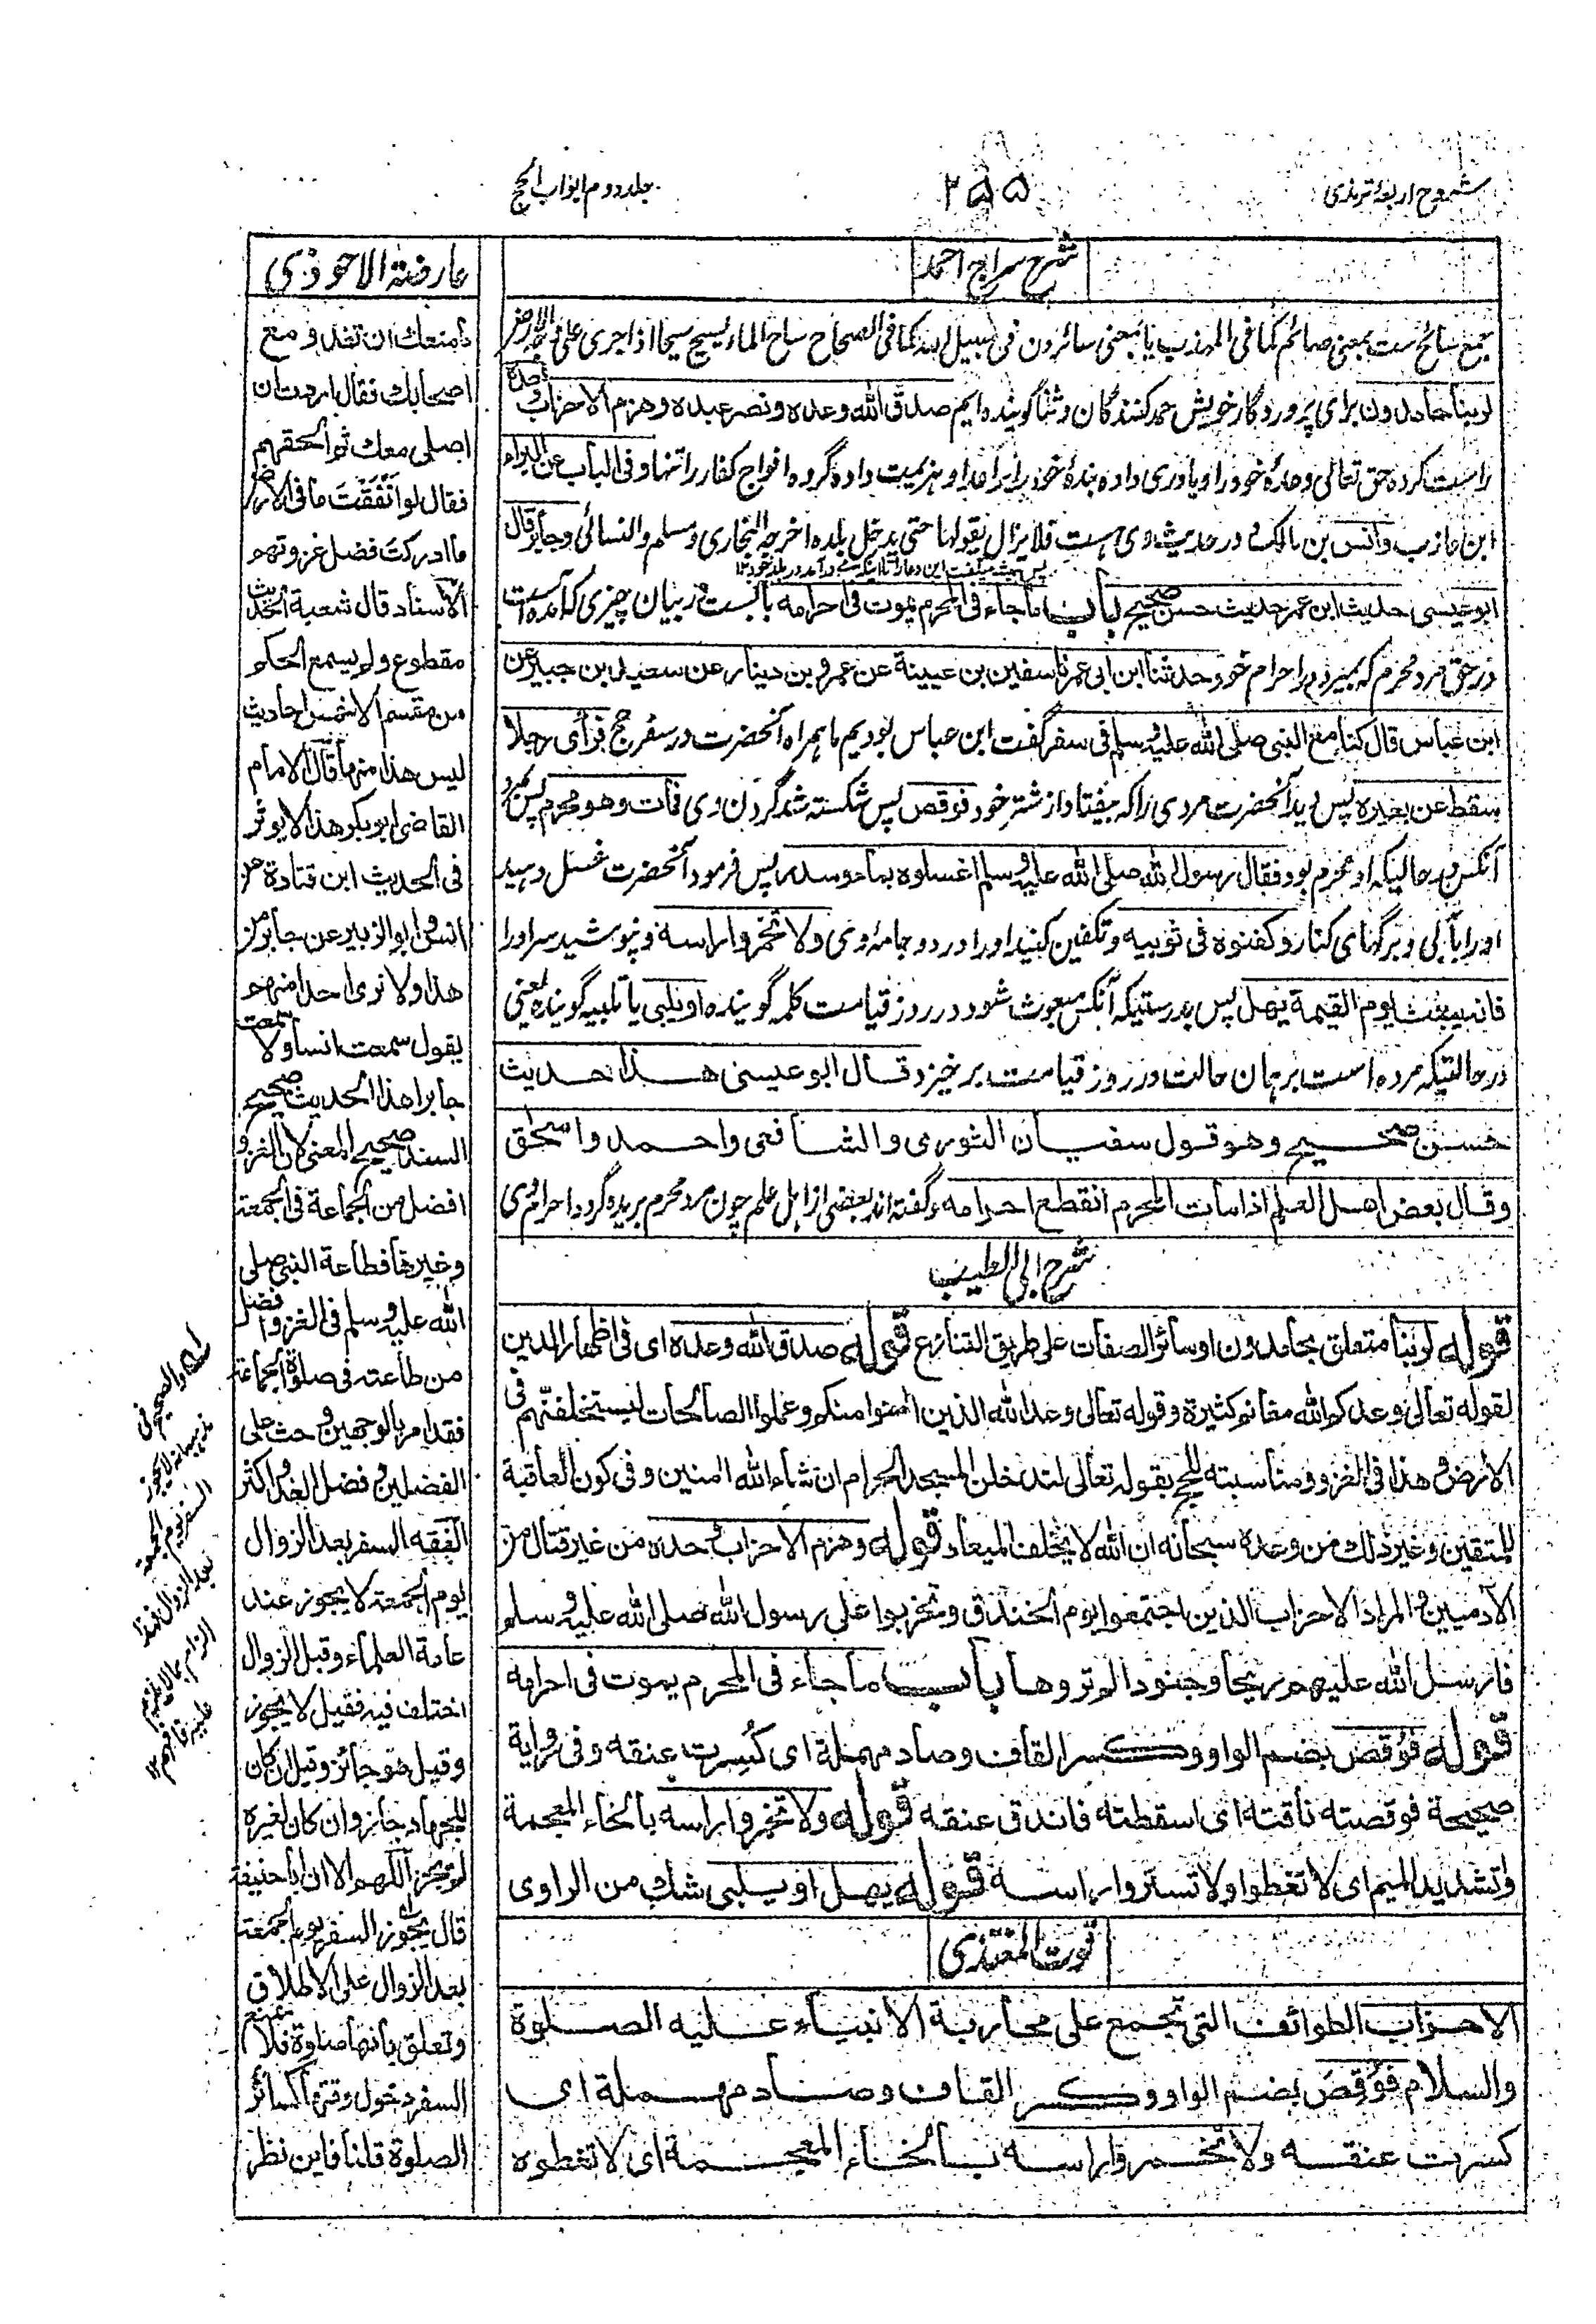 شروح اربعهٔ ترمذی
۲۵۵
جلد دوم ابواب الحج
شرح سراج احمد
جمع سائح ست بمعنی صائم کما فی المهذب یا بمعنی سائرون فی سبیل الله کما فی الصحاح ساح الماء یسیح سیحا اذا جری علی وجه الارض
لربنا حامدون برای پروردگار خویش حمد کنندگان و ثنا گوینده ایم صدق الله وعده ونصر عبده وهزم الاحزاب وحده
راست کرده حق تعالی وعدهٔ خود را و یاوری داده بندهٔ خود را بر اعدا و هزیمت داده گروه افواج کفار را تنها وفی الباب عن البراء
ابن عازب وانس بن مالک در حدیث وی ست فلا یزال یقولها حتی یدخل بلده اخرجه البخاری ومسلم والنسائی وجابر قال
پس همیشه میگفت این دعا را تا اینکه می درآمد در بلد خود ۱۲
ابو عیسی حدیث ابن عمر حدیث حسن صحیح باب ما جاء فی المحرم یموت فی احرامه بابست در بیان چیزی که آمده است
در حق مرد محرم که بمیرد در احرام خود حدثنا ابن ابی عمر نا سفین بن عیینة عن عمرو بن دینار عن سعید بن جبیر عن
ابن عباس قال کنا مع النبی صلی الله علیه وسلم فی سفر گفت ابن عباس بودیم ما همراه آنحضرت در سفر حج فرأی رجلا
سقط عن بعیره پس دید آنحضرت مردی را که بیفتاد از شتر خود فوقص پس شکسته شد گردن وی فمات وهو محرم پس بمرد
آنکس در حالیکه او محرم بود فقال رسول الله صلی الله علیه وسلم اغسلوه بماء وسدر پس فرمود آنحضرت غسل دهید
او را بآبی و برگهای کنار وکفنوه فی ثوبیه و تکفین کنید او را در دو جامهٔ وی ولا تخمروا راسه و نپوشید سر او را
فانه یبعث یوم القیمة یهل پس بدرستیکه آنکس مبعوث شود در روز قیامت کلمه گوینده او یلبی یا تلبیه گوینده یعنی
در حالتیکه مرده است بر همان حالت در روز قیامت برخیزد قال ابو عیسی هذا حدیث
حسن صحیح وهو قول سفیان الثوری والشافعی واحمد واسحق
وقال بعض اهل العلم اذا مات المحرم انقطع احرامه و گفته اند بعضی از اهل علم چون مرد محرم بریده گردد احرام وی
شرح ابی الطیب
قوله لربنا متعلق بحامدون او سائر الصفات علی طریق التنازع قوله صدق الله وعده ای فی اظهار الدین
لقوله تعالی وعدکم الله مغانم کثیرة وقوله تعالی وعد الله الذین آمنوا منکم وعملوا الصالحات لیستخلفنهم فی
الارض وهذا فی الغزو ومناسبته للحج بقوله تعالی لتدخلن المسجد الحرام ان شاء الله آمنین وفی کون العاقبة
للمتقین وغیر ذلک من وعده سبحانه ان الله لا یخلف المیعاد قوله وهزم الاحزاب وحده من غیر قتال من
الآدمیین والمراد الاحزاب الذین اجتمعوا یوم الخندق وتحزبوا علی رسول الله صلی الله علیه وسلم
فارسل الله علیهم ریحا وجنودا لم تروها باب ما جاء فی المحرم یموت فی احرامه
قوله فوُقص بضم الواو وکسر القاف وصاد مهملة ای کُسِرت عنقه وفی روایة
صحیحة فوقصته ناقته ای اسقطته فاندق عنقه قوله ولا تخمروا راسه بالخاء المعجمة
وتشدید المیم ای لا تغطوا ولا تستروا راسه قوله یهل او یلبی شک من الراوی
قوت المغتذی
الاحزاب الطوائف التی تجمع علی محاربة الانبیاء علیه الصلوة
والسلام فوُقِصَ بضم الواو وکسر القاف وصاد مهملة ای
کسرت عنقه ولا تخمروا راسه بالخاء المعجمة ای لا تغطوه
عارضة الاحوذی
مامنعک ان تغدو مع
اصحابک فقال اردت ان
اصلی معک ثم الحقهم
فقال لو انفَقتَ ما فی الارض
ما ادرکت فضل غزوتهم
الاسناد قال شعبة الحدیث
مقطوع ولم یسمع الحکم
من مقسم الا خمس احادیث
لیس هذا منها قال الامام
القاضی ابو بکر هذا لا یوثر
فی الحدیث ابن قتادة عن
انس وابو الزبیر عن جابر من
هذا ولا نری احدا منهم
یقول سمعت انسا ولا سمعت
جابرا هذا الحدیث صحیح
السند صحیح المعنی لان الغزو
افضل من الجماعة فی الجمعة
وغیرها فطاعة النبی صلی
الله علیه وسلم فی الغزو افضل
من طاعته فی صلوة الجماعة
فقد امر بالوجهین وحث علی
الفضلین وفضل الغدو اکثر
الفقه السفر بعد الزوال
یوم الجمعة لا یجوز عند
عامة العلماء وقبل الزوال
اختلف فیه فقیل لا یجوز
وقیل هو جائز وقیل ان کان
للجهاد جاز وان کان لغیره
لم یجز اللهم الا ان ابا حنیفة
قال یجوز السفر یوم الجمعة
بعد الزوال علی الاطلاق
وتعلق بانها صلوة فلا یمنع
السفر دخول وقتها کسائر
الصلوة قلنا فاین نظر
والصحیح فی
مذهبنا انه لا یجوز
السفر یوم الجمعة
بعد الزوال فهذا
الزام بما لا یلتزم
علیه فافهم ۱۲